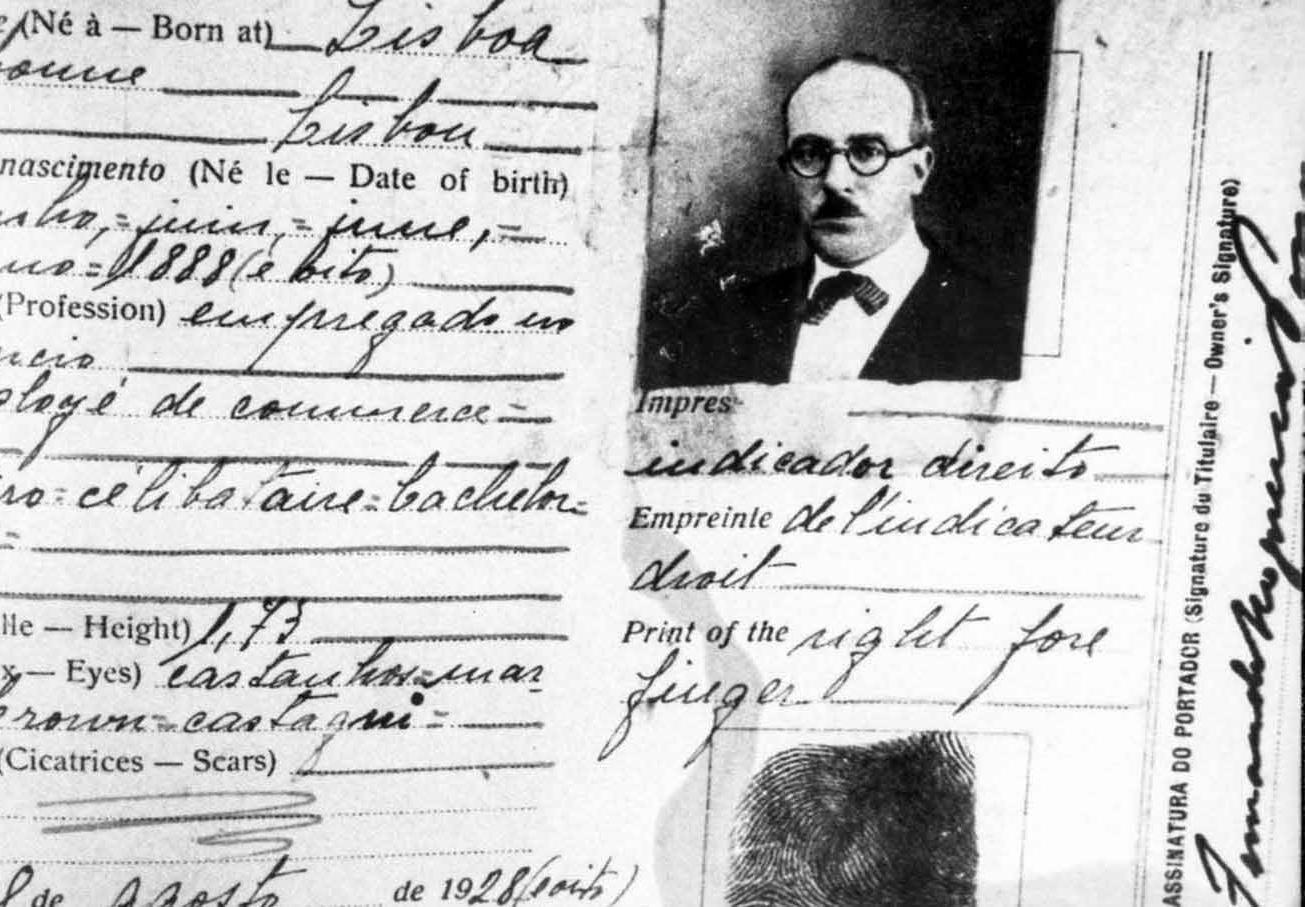 (Né à — Born at) Lisboa
Lisbon
nascimento (Né le — Date of birth)
juin, = june, =
= 1888 (e oito)
(Profession) empregado no
de commerce =
célibataire = bachelor =
Height) 1,73
Eyes) castanhos = mar
castagni =
(Cicatrices — Scars)
de agosto de 1928 (e oito)
Impres
indicador direito
Empreinte de l'indicateur
droit
Print of the right fore
finger
ASSINATURA DO PORTADOR (Signature du Titulaire — Owner's Signature)
Fernando Nogueira